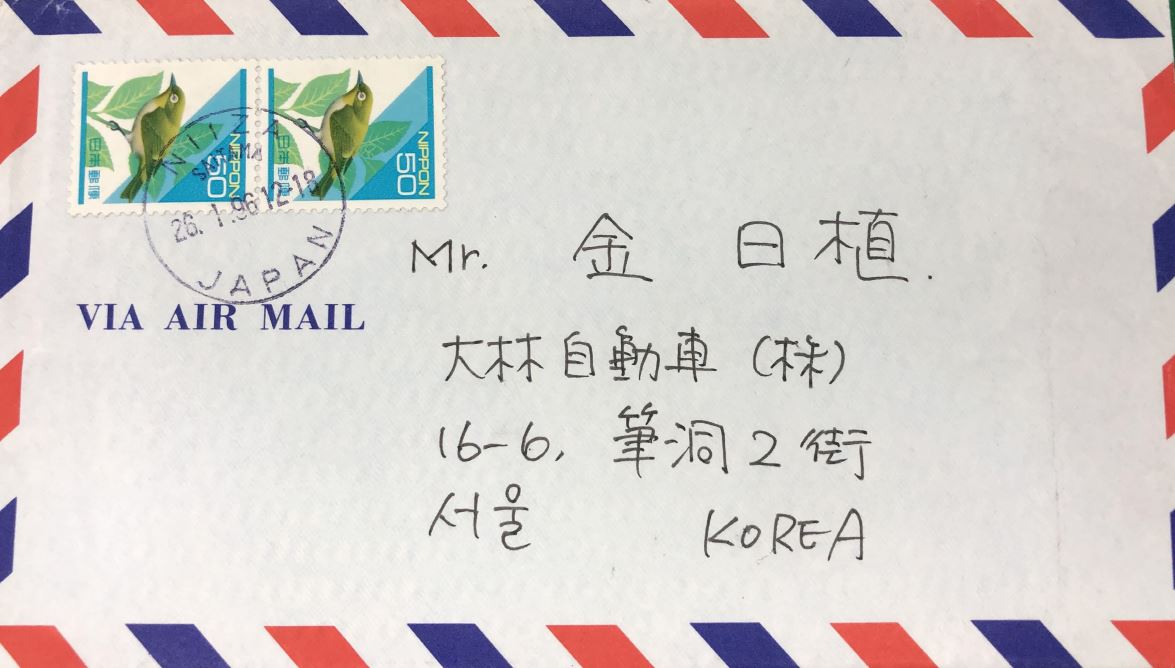 日本郵便 NIPPON 50
日本郵便 NIPPON 50
NIIZA
SAITAMA
26.1.96 12-18
JAPAN
VIA AIR MAIL
Mr. 金 日 植.
大林自動車 (株)
16-6, 筆洞 2 街
서울 KOREA